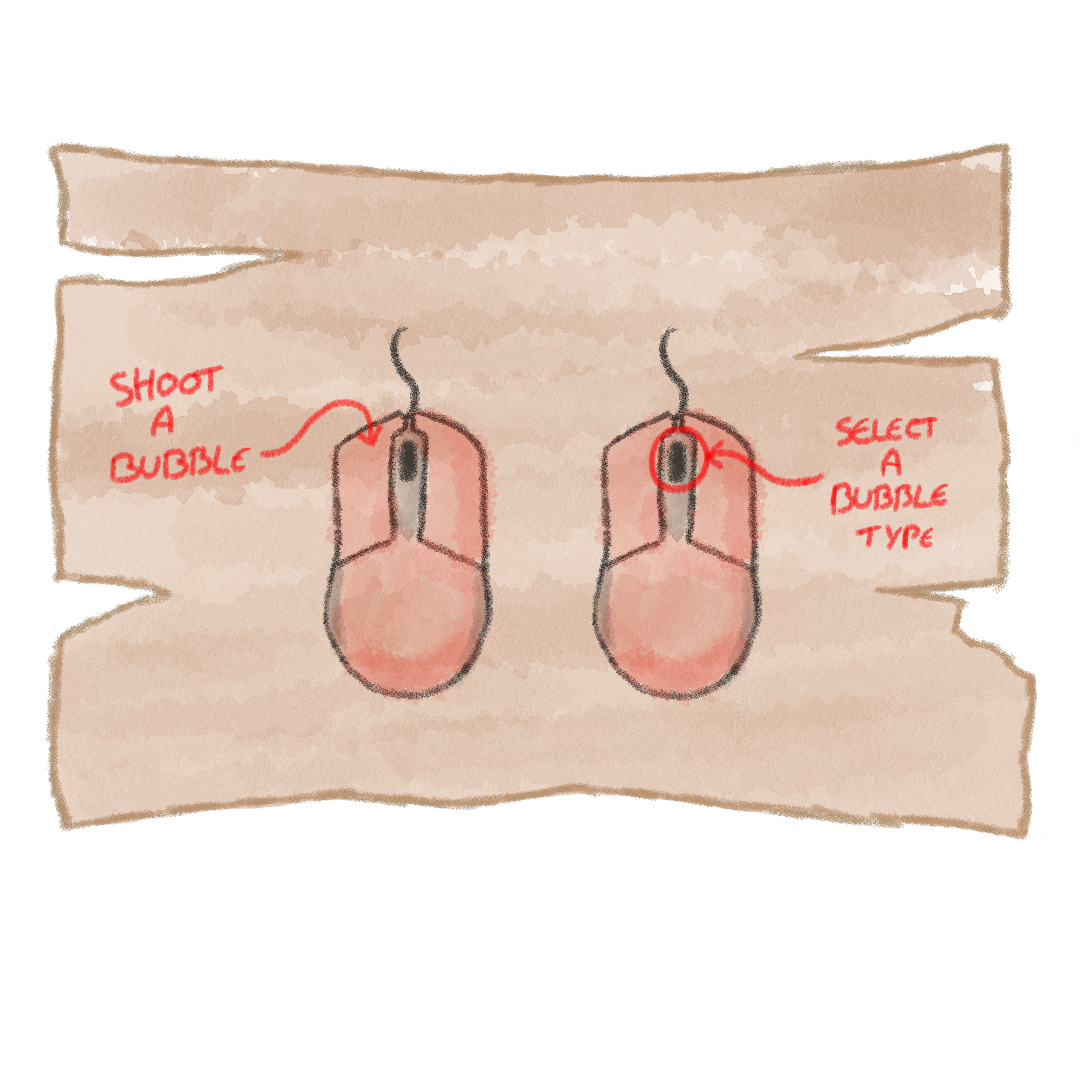 SHOOT
A
BUBBLE
SELECT
A
BUBBLE
TYPE